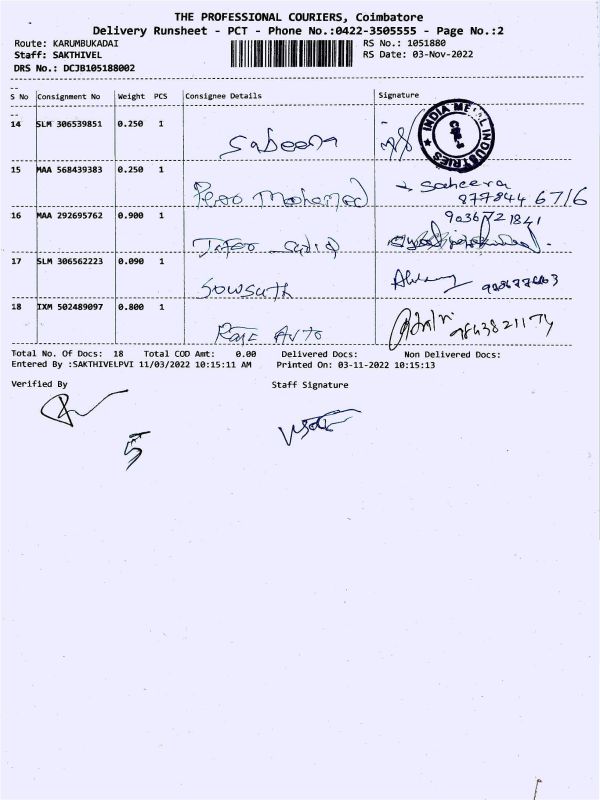 THE PROFESSIONAL COURIERS, Coimbatore
Delivery Runsheet - PCT - Phone No.:0422-3505555 - Page No.:2
Route: KARUMBUKADAI RS No.: 1051880
Staff: SAKTHIVEL RS Date: 03-Nov-2022
DRS No.: DCJB105188002
S No Consignment No Weight PCS Consignee Details Signature
14 SLM 306539851 0.250 1 Sabeena INDIA METAL INDUSTRIES
15 MAA 568439383 0.250 1 Mohamed Saheera
877844 6716
16 MAA 292695762 0.900 1 9036721841
17 SLM 306562223 0.090 1 Sowsuth
18 IXM 502489097 0.800 1 Raje Auto 9843821174
Total No. Of Docs: 18 Total COD Amt: 0.00 Delivered Docs: Non Delivered Docs:
Entered By :SAKTHIVELPVI 11/03/2022 10:15:11 AM Printed On: 03-11-2022 10:15:13
Verified By Staff Signature
5